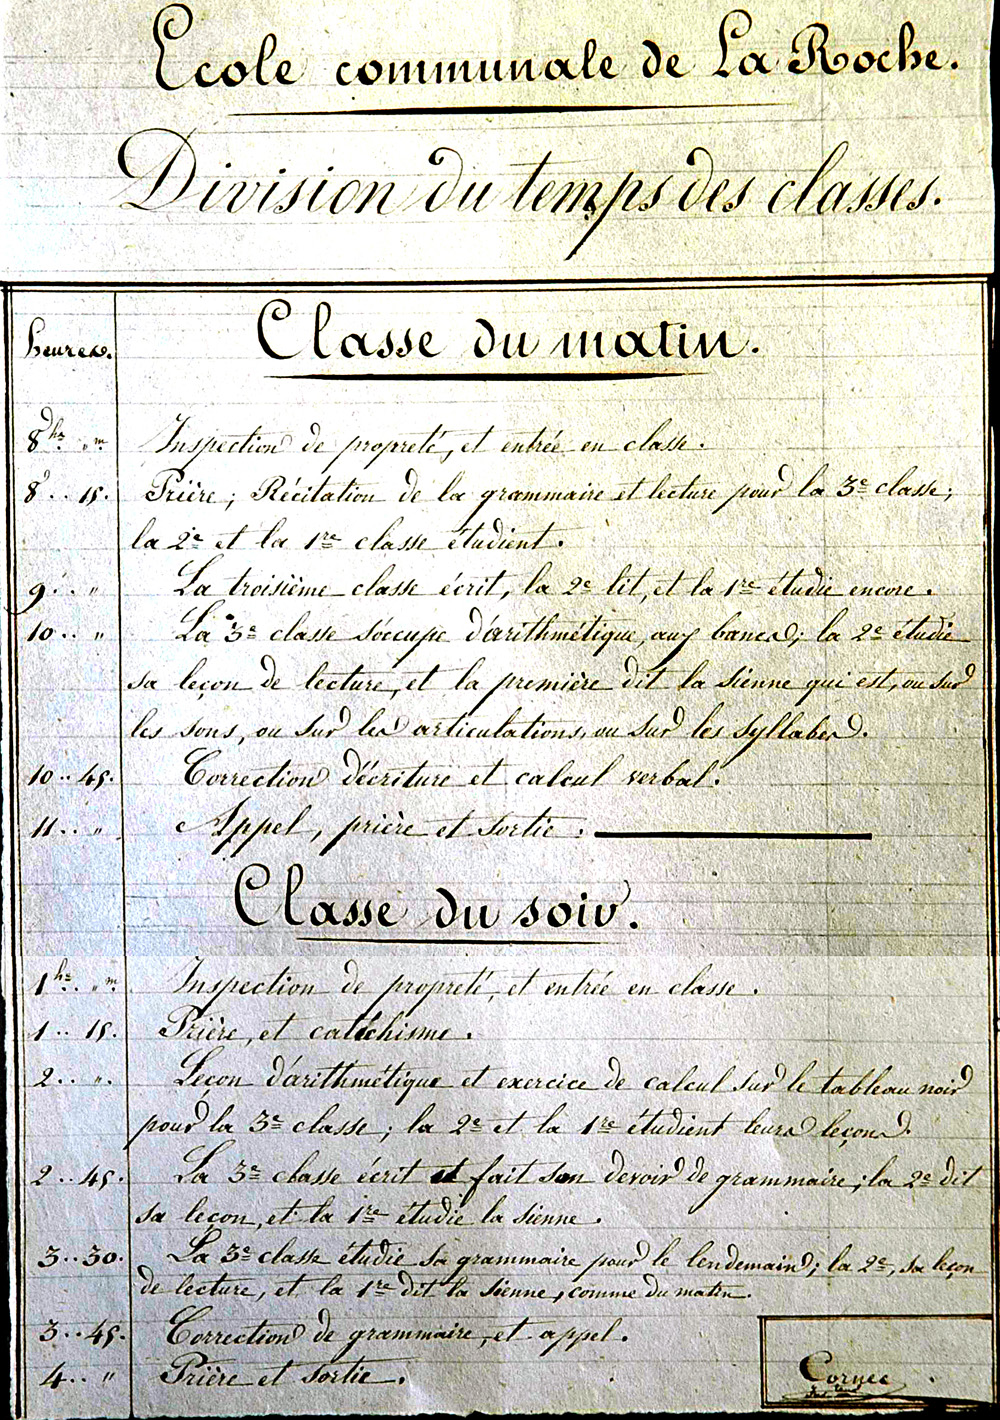 Ecole communale de La Roche.
Division du temps des classes.
heures.
Classe du matin.
8 hes. " m. Inspection de propreté, et entrée en classe.
8 .. 15. Prière ; Récitation de la grammaire et lecture pour la 3e classe ;
la 2e et la 1re classe étudient.
9 .. " La troisième classe écrit, la 2e lit, et la 1re étudie encore.
10 .. " La 3e classe s'occupe d'arithmétique, aux bancs ; la 2e étudie
sa leçon de lecture, et la première dit la sienne qui est, ou sur
les sons, ou sur les articulations, ou sur les syllabes.
10 .. 45. Correction d'écriture et calcul verbal.
11 .. " Appel, prière et sortie.
Classe du soir.
1 he. " m Inspection de propreté, et entrée en classe.
1 .. 15. Prière, et catéchisme.
2 .. ". Leçon d'arithmétique et exercice de calcul sur le tableau noir
pour la 3e classe ; la 2e et la 1re étudient leurs leçons.
2 .. 45. La 3e classe écrit et fait son devoir de grammaire ; la 2e dit
sa leçon, et la 1re étudie la sienne.
3 .. 30. La 3e classe étudie sa grammaire pour le lendemain ; la 2e, sa leçon
de lecture, et la 1re dit la sienne, comme du matin.
3 .. 45. Correction de grammaire, et appel.
4 .. " Prière et sortie.
Cornec